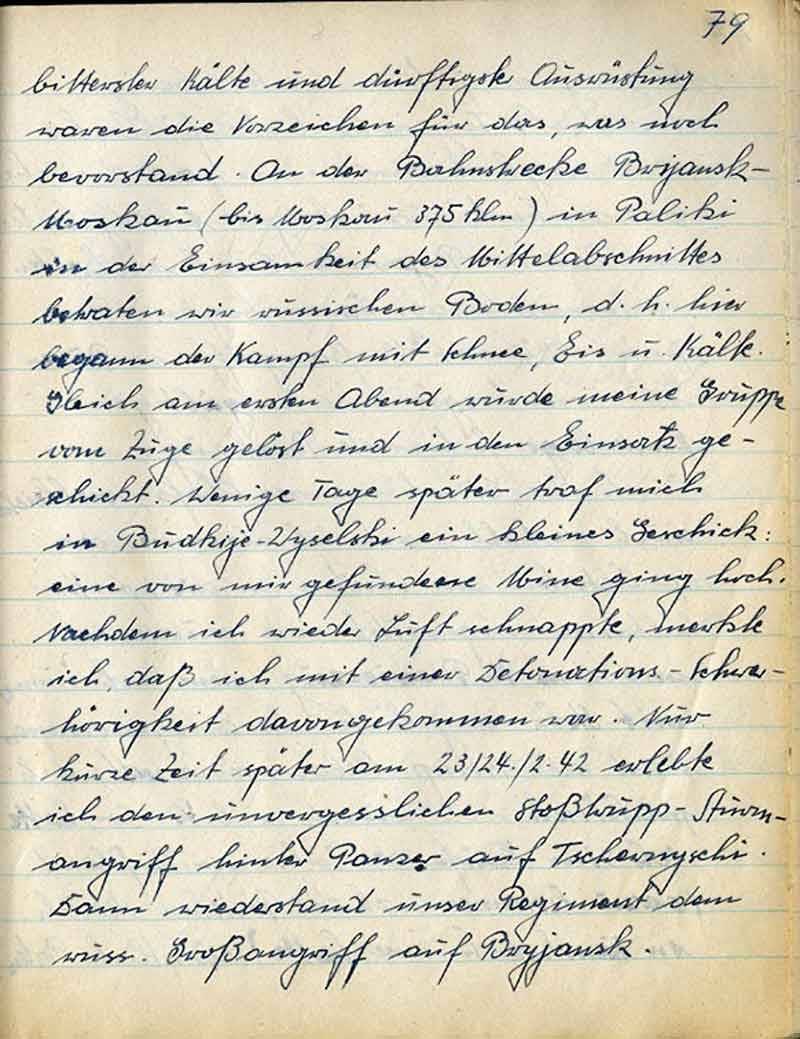 79
bitterster Kälte und dürftigste Ausrüstung
waren die Vorzeichen für das, was noch
bevorstand. An der Bahnstrecke Brijansk-
Moskau (bis Moskau 375 klm) in Paliki
in der Einsamkeit des Mittelabschnittes
betraten wir russischen Boden, d. h. hier
begann der Kampf mit Schnee, Eis u. Kälte.
Gleich am ersten Abend wurde meine Gruppe
vom Zuge gelöst und in den Einsatz ge-
schickt. Wenige Tage später traf mich
in Budkije-Wyselski ein kleines Geschick:
eine von mir gefundene Mine ging hoch.
Nachdem ich wieder Luft schnappte, merkte
ich, daß ich mit einer Detonations-Schwer-
hörigkeit davongekommen war. Nur
kurze Zeit später am 23/24./2.42 erlebte
ich den unvergesslichen Stoßtrupp-Sturm-
angriff hinter Panzer auf Tschernyschi.
Dann wiederstand unser Regiment dem
russ. Großangriff auf Bryjansk.